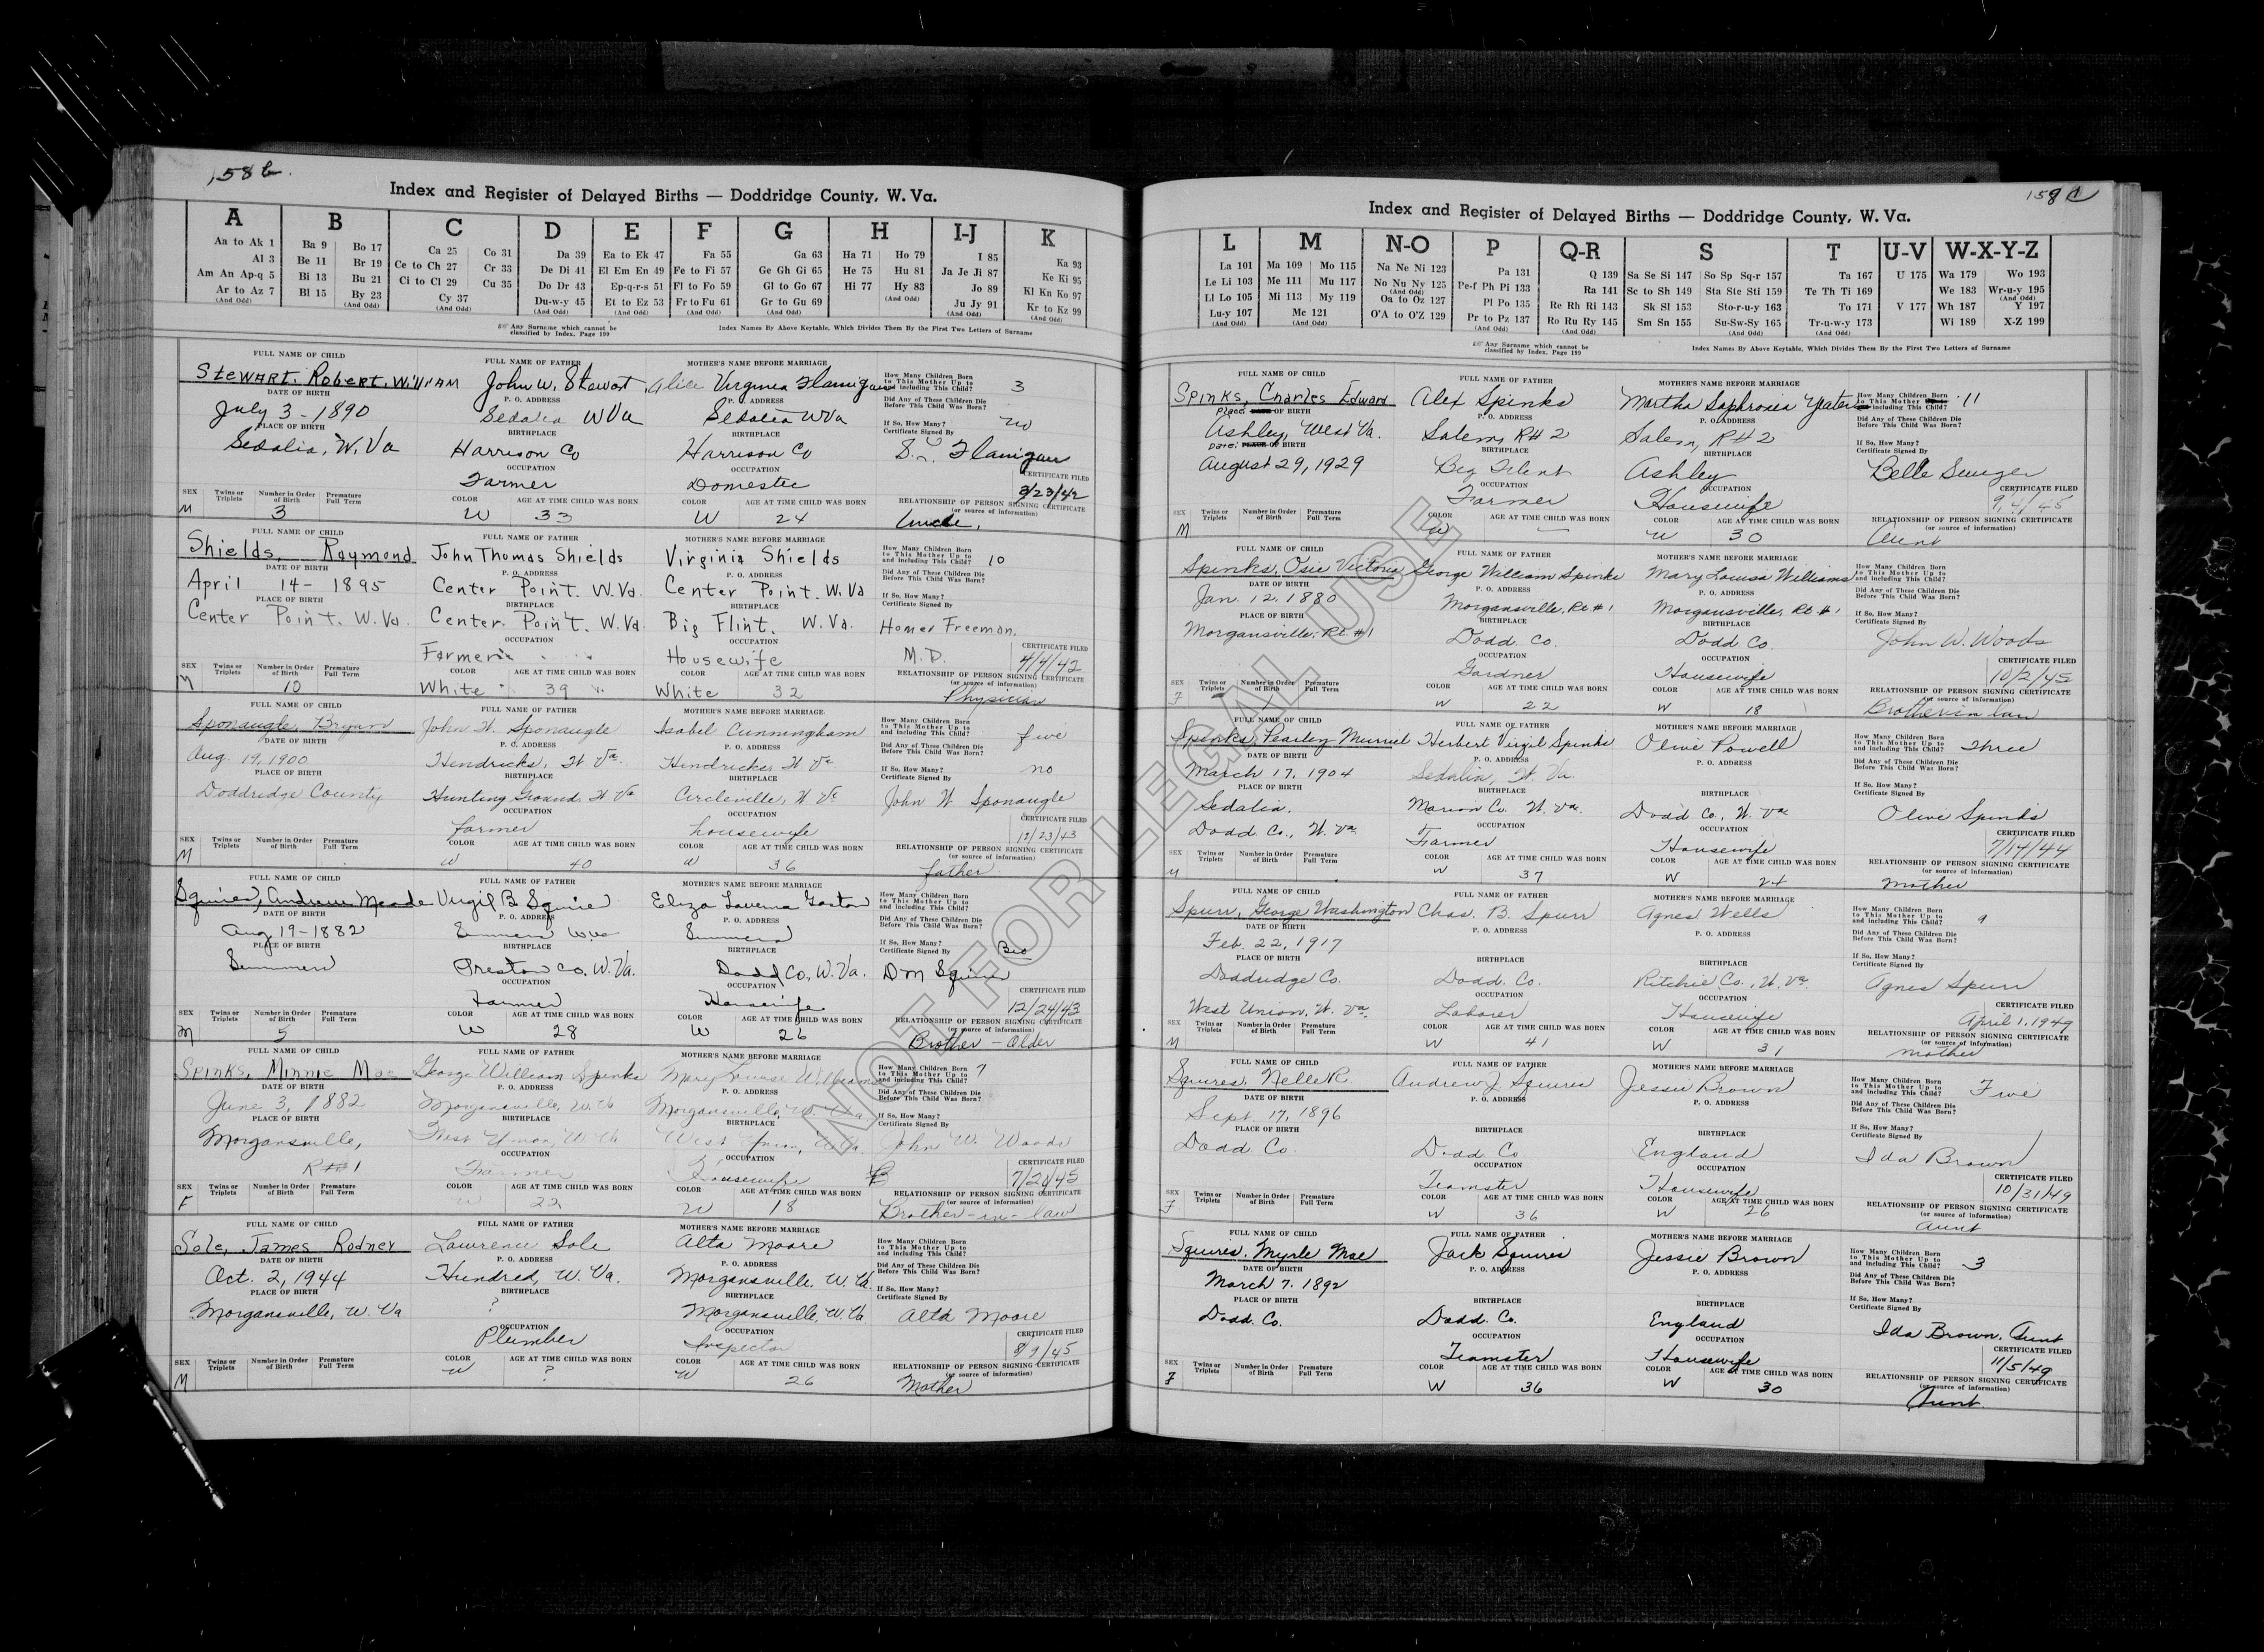 158 b.
Index and Register of Delayed Births — Doddridge County, W. Va.
A B C D E F G H I-J K
Aa to Ak 1 Ba 9 Bo 17 Ca 25 Co 31 Da 39 Ea to Ek 47 Fa 55 Ga 63 Ha 71 Ho 79 I 85 Ka 93
Al 3 Be 11 Br 19 Ce to Ch 27 Cr 33 De Di 41 El Em En 49 Fe to Fi 57 Ge Gh Gi 65 He 75 Hu 81 Ja Je Ji 87 Ke Ki 95
Am An Ap-q 5 Bi 13 Bu 21 Ci to Cl 29 Cu 35 Do Dr 43 Ep-q-r-s 51 Fl to Fo 59 Gl to Go 67 Hi 77 Hy 83 Jo 89 Kl Kn Ko 97
Ar to Az 7 Bl 15 By 23 Cy 37 Du-w-y 45 Et to Ez 53 Fr to Fu 61 Gr to Gu 69 (And Odd) Ju Jy 91 Kr to Kz 99
(And Odd) (And Odd) (And Odd) (And Odd) (And Odd) (And Odd) (And Odd) (And Odd) (And Odd)
Any Surname which cannot be classified by Index, Page 199 Index Names By Above Keytable, Which Divides Them By the First Two Letters of Surname
FULL NAME OF CHILD FULL NAME OF FATHER MOTHER'S NAME BEFORE MARRIAGE How Many Children Born to This Mother Up to and including This Child? 3
Stewart, Robert, William John W. Stewart Alice Virginia Flanigan
DATE OF BIRTH P. O. ADDRESS P. O. ADDRESS Did Any of These Children Die Before This Child Was Born?
July 3 - 1890 Sedalia W Va Sedalia W Va If So, How Many? no
PLACE OF BIRTH BIRTHPLACE BIRTHPLACE Certificate Signed By
Sedalia, W. Va Harrison Co Harrison Co Flanigan
OCCUPATION OCCUPATION CERTIFICATE FILED
Farmer Domestic 3/23/42
SEX Twins or Triplets Number in Order of Birth Premature Full Term COLOR AGE AT TIME CHILD WAS BORN COLOR AGE AT TIME CHILD WAS BORN RELATIONSHIP OF PERSON SIGNING CERTIFICATE (or source of information)
M 3 W 33 W 24 Uncle
FULL NAME OF CHILD FULL NAME OF FATHER MOTHER'S NAME BEFORE MARRIAGE How Many Children Born to This Mother Up to and including This Child? 10
Shields, Raymond John Thomas Shields Virginia Shields
DATE OF BIRTH P. O. ADDRESS P. O. ADDRESS Did Any of These Children Die Before This Child Was Born?
April 14 - 1895 Center Point. W. Va. Center Point. W. Va If So, How Many?
PLACE OF BIRTH BIRTHPLACE BIRTHPLACE Certificate Signed By
Center Point. W. Va. Center Point. W. Va. Big Flint. W. Va. Homer Freeman.
OCCUPATION OCCUPATION CERTIFICATE FILED
Farmer Housewife M. D. 4/4/42
SEX Twins or Triplets Number in Order of Birth Premature Full Term COLOR AGE AT TIME CHILD WAS BORN COLOR AGE AT TIME CHILD WAS BORN RELATIONSHIP OF PERSON SIGNING CERTIFICATE (or source of information)
M 10 White 39 White 32 Physician
FULL NAME OF CHILD FULL NAME OF FATHER MOTHER'S NAME BEFORE MARRIAGE How Many Children Born to This Mother Up to and including This Child? five
Sponaugle, Bryan John W. Sponaugle Isabel Cunningham
DATE OF BIRTH P. O. ADDRESS P. O. ADDRESS Did Any of These Children Die Before This Child Was Born?
Aug. 19, 1900 Hendricks, W Va. Hendricks W Va. If So, How Many? no
PLACE OF BIRTH BIRTHPLACE BIRTHPLACE Certificate Signed By
Doddridge County Hunting Ground, W Va Circleville, W Va John W Sponaugle
OCCUPATION OCCUPATION CERTIFICATE FILED
farmer housewife 12/23/43
SEX Twins or Triplets Number in Order of Birth Premature Full Term COLOR AGE AT TIME CHILD WAS BORN COLOR AGE AT TIME CHILD WAS BORN RELATIONSHIP OF PERSON SIGNING CERTIFICATE (or source of information)
M W 40 W 36 father
FULL NAME OF CHILD FULL NAME OF FATHER MOTHER'S NAME BEFORE MARRIAGE How Many Children Born to This Mother Up to and including This Child?
Squires, Andrew Meade Virgil B Squires Eliza Laverna Gaston
DATE OF BIRTH P. O. ADDRESS P. O. ADDRESS Did Any of These Children Die Before This Child Was Born?
Aug 19 - 1882 W. Va If So, How Many?
PLACE OF BIRTH BIRTHPLACE BIRTHPLACE Certificate Signed By Bro
Preston Co. W. Va. Dodd Co, W. Va. D M Squires
OCCUPATION OCCUPATION CERTIFICATE FILED
Farmer Housewife 12/24/43
SEX Twins or Triplets Number in Order of Birth Premature Full Term COLOR AGE AT TIME CHILD WAS BORN COLOR AGE AT TIME CHILD WAS BORN RELATIONSHIP OF PERSON SIGNING CERTIFICATE (or source of information)
M 5 W 28 W 26 Brother - Older
FULL NAME OF CHILD FULL NAME OF FATHER MOTHER'S NAME BEFORE MARRIAGE How Many Children Born to This Mother Up to and including This Child? 7
Spinks, Minnie Mae George William Spinks Mary Louise Williams
DATE OF BIRTH P. O. ADDRESS P. O. ADDRESS Did Any of These Children Die Before This Child Was Born?
June 3, 1882 Morgansville, W. Va Morgansville, W. Va. If So, How Many?
PLACE OF BIRTH BIRTHPLACE BIRTHPLACE Certificate Signed By
Morgansville, West Union, W. Va West Union, W. Va. John W. Woods
R # 1 OCCUPATION OCCUPATION CERTIFICATE FILED
Farmer Housewife 7/21/45
SEX Twins or Triplets Number in Order of Birth Premature Full Term COLOR AGE AT TIME CHILD WAS BORN COLOR AGE AT TIME CHILD WAS BORN RELATIONSHIP OF PERSON SIGNING CERTIFICATE (or source of information)
F W 22 W 18 Brother-in-law
FULL NAME OF CHILD FULL NAME OF FATHER MOTHER'S NAME BEFORE MARRIAGE How Many Children Born to This Mother Up to and including This Child?
Sole, James Rodney Lawrence Sole Alta Moore
DATE OF BIRTH P. O. ADDRESS P. O. ADDRESS Did Any of These Children Die Before This Child Was Born?
Oct. 2, 1944 Hundred, W. Va. Morgansville, W. Va. If So, How Many?
PLACE OF BIRTH BIRTHPLACE BIRTHPLACE Certificate Signed By
Morgansville, W. Va ? Morgansville, W. Va Alta Moore
OCCUPATION OCCUPATION CERTIFICATE FILED
Plumber Inspector 8/9/45
SEX Twins or Triplets Number in Order of Birth Premature Full Term COLOR AGE AT TIME CHILD WAS BORN COLOR AGE AT TIME CHILD WAS BORN RELATIONSHIP OF PERSON SIGNING CERTIFICATE (or source of information)
M W ? W 26 Mother
158
Index and Register of Delayed Births — Doddridge County, W. Va.
L M N-O P Q-R S T U-V W-X-Y-Z
La 101 Ma 109 Mo 115 Na Ne Ni 123 Pa 131 Q 139 Sa Se Si 147 So Sp Sq-r 157 Ta 167 U 175 Wa 179 Wo 193
Le Li 103 Me 111 Mu 117 No Nu Ny 125 (And Odd) Pe-f Ph Pi 133 Ra 141 Sc to Sh 149 Sta Ste Sti 159 Te Th Ti 169 We 183 Wr-u-y 195 (And Odd)
Ll Lo 105 Mi 113 My 119 Oa to Oz 127 Pl Po 135 Re Rh Ri 143 Sk Sl 153 Sto-r-u-y 163 To 171 V 177 Wh 187 Y 197
Lu-y 107 Mc 121 O'A to O'Z 129 Pr to Pz 137 Ro Ru Ry 145 Sm Sn 155 Su-Sw-Sy 165 Tr-u-w-y 173 Wi 189 X-Z 199
(And Odd) (And Odd) (And Odd) (And Odd) (And Odd) (And Odd)
Any Surname which cannot be classified by Index, Page 199 Index Names By Above Keytable, Which Divides Them By the First Two Letters of Surname
FULL NAME OF CHILD FULL NAME OF FATHER MOTHER'S NAME BEFORE MARRIAGE How Many Children Born to This Mother including This Child? 11
Spinks, Charles Edward Alex Spinks Martha Sophronia
Place OF BIRTH P. O. ADDRESS P. O. ADDRESS Did Any of These Children Die Before This Child Was Born?
Ashley, West Va. Salem, R # 2 Salem, R # 2 If So, How Many?
Date OF BIRTH BIRTHPLACE BIRTHPLACE Certificate Signed By
August 29, 1929 Big Ashley Belle
OCCUPATION OCCUPATION CERTIFICATE FILED
Farmer Housewife 9/4/45
SEX Twins or Triplets Number in Order of Birth Premature Full Term COLOR AGE AT TIME CHILD WAS BORN COLOR AGE AT TIME CHILD WAS BORN RELATIONSHIP OF PERSON SIGNING CERTIFICATE (or source of information)
M W — W 30 Aunt
FULL NAME OF CHILD FULL NAME OF FATHER MOTHER'S NAME BEFORE MARRIAGE How Many Children Born to This Mother Up to and including This Child?
Spinks, Osie Victoria George William Spinks Mary Louisa Williams
DATE OF BIRTH P. O. ADDRESS P. O. ADDRESS Did Any of These Children Die Before This Child Was Born?
Jan. 12, 1880 Morgansville, Rt # 1 Morgansville, Rt # 1 If So, How Many?
PLACE OF BIRTH BIRTHPLACE BIRTHPLACE Certificate Signed By
Morgansville, Rt # 1 Dodd. Co. Dodd. Co. John W. Woods
OCCUPATION OCCUPATION CERTIFICATE FILED
Gardner Housewife 10/2/45
SEX Twins or Triplets Number in Order of Birth Premature Full Term COLOR AGE AT TIME CHILD WAS BORN COLOR AGE AT TIME CHILD WAS BORN RELATIONSHIP OF PERSON SIGNING CERTIFICATE (or source of information)
F W 22 W 18 Brother in law
FULL NAME OF CHILD FULL NAME OF FATHER MOTHER'S NAME BEFORE MARRIAGE How Many Children Born to This Mother Up to and including This Child? Three
Spinks, Pearley Murriel Herbert Virgil Spinks Olive Powell
DATE OF BIRTH P. O. ADDRESS P. O. ADDRESS Did Any of These Children Die Before This Child Was Born?
March 17, 1904 Sedalia, W. Va. If So, How Many?
PLACE OF BIRTH BIRTHPLACE BIRTHPLACE Certificate Signed By
Sedalia. Marion Co. W. Va. Dodd Co., W. Va Olive Spinks
Dodd Co., W. Va. OCCUPATION OCCUPATION CERTIFICATE FILED
Farmer Housewife 7/17/44
SEX Twins or Triplets Number in Order of Birth Premature Full Term COLOR AGE AT TIME CHILD WAS BORN COLOR AGE AT TIME CHILD WAS BORN RELATIONSHIP OF PERSON SIGNING CERTIFICATE (or source of information)
M W 37 W 24 mother
FULL NAME OF CHILD FULL NAME OF FATHER MOTHER'S NAME BEFORE MARRIAGE How Many Children Born to This Mother Up to and including This Child? 9
Spurr, George Washington Chas. B. Spurr Agnes Wells
DATE OF BIRTH P. O. ADDRESS P. O. ADDRESS Did Any of These Children Die Before This Child Was Born?
Feb. 22, 1917 If So, How Many?
PLACE OF BIRTH BIRTHPLACE BIRTHPLACE Certificate Signed By
Doddridge Co. Dodd. Co. Ritchie Co., W. Va. Agnes Spurr
OCCUPATION OCCUPATION CERTIFICATE FILED
West Union, W. Va. Laborer Housewife April 1, 1949
SEX Twins or Triplets Number in Order of Birth Premature Full Term COLOR AGE AT TIME CHILD WAS BORN COLOR AGE AT TIME CHILD WAS BORN RELATIONSHIP OF PERSON SIGNING CERTIFICATE (or source of information)
M W 41 W 31 mother
FULL NAME OF CHILD FULL NAME OF FATHER MOTHER'S NAME BEFORE MARRIAGE How Many Children Born to This Mother Up to and including This Child? Five
Squires, Nelle R Andrew J. Squires Jessie Brown
DATE OF BIRTH P. O. ADDRESS P. O. ADDRESS Did Any of These Children Die Before This Child Was Born?
Sept. 17, 1896 If So, How Many?
PLACE OF BIRTH BIRTHPLACE BIRTHPLACE Certificate Signed By
Dodd Co. Dodd Co England Ida Brown
OCCUPATION OCCUPATION CERTIFICATE FILED
Teamster Housewife 10/31/49
SEX Twins or Triplets Number in Order of Birth Premature Full Term COLOR AGE AT TIME CHILD WAS BORN COLOR AGE AT TIME CHILD WAS BORN RELATIONSHIP OF PERSON SIGNING CERTIFICATE (or source of information)
F W 36 W 26 aunt
FULL NAME OF CHILD FULL NAME OF FATHER MOTHER'S NAME BEFORE MARRIAGE How Many Children Born to This Mother Up to and including This Child? 3
Squires, Myrle Mae Jack Squires Jessie Brown
DATE OF BIRTH P. O. ADDRESS P. O. ADDRESS Did Any of These Children Die Before This Child Was Born?
March 7, 1892 If So, How Many?
PLACE OF BIRTH BIRTHPLACE BIRTHPLACE Certificate Signed By
Dodd. Co. Dodd. Co. England Ida Brown, Aunt
OCCUPATION OCCUPATION CERTIFICATE FILED
Teamster Housewife 11/5/49
SEX Twins or Triplets Number in Order of Birth Premature Full Term COLOR AGE AT TIME CHILD WAS BORN COLOR AGE AT TIME CHILD WAS BORN RELATIONSHIP OF PERSON SIGNING CERTIFICATE (or source of information)
F W 36 W 30 Aunt.
NOT FOR LEGAL USE